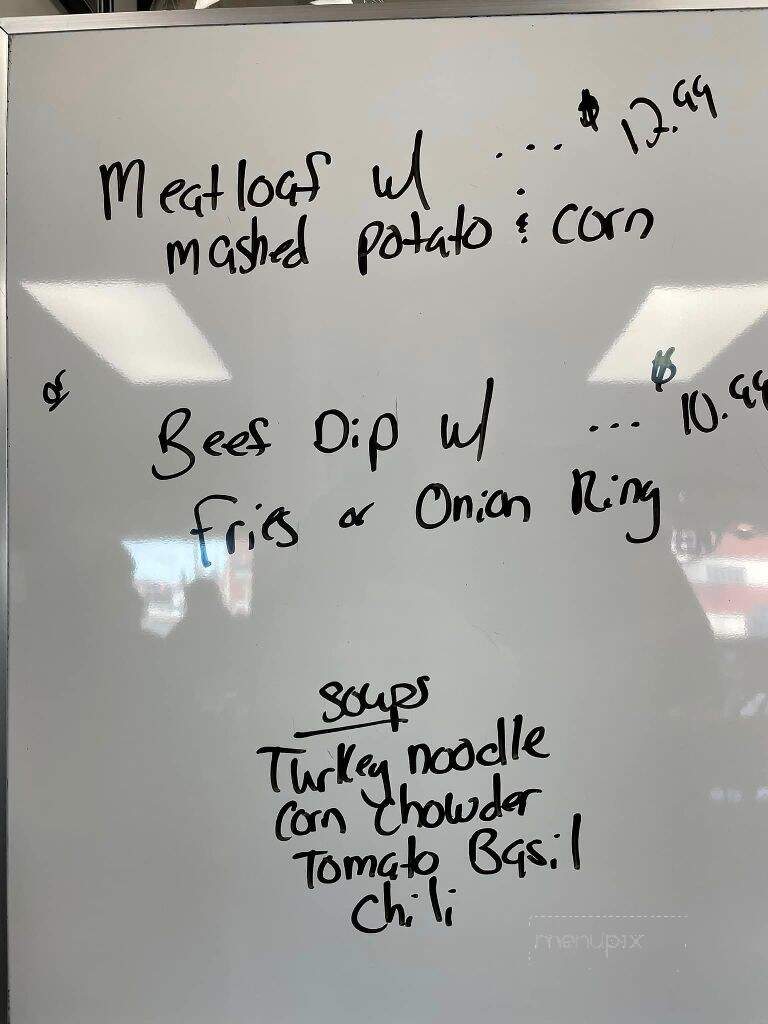 Meatloaf w/ ... $ 12.99
mashed potato & corn
or
Beef Dip w/ ... $ 10.99
fries or Onion Ring
Soups
Turkey noodle
Corn Chowder
Tomato Basil
Chili
menupix